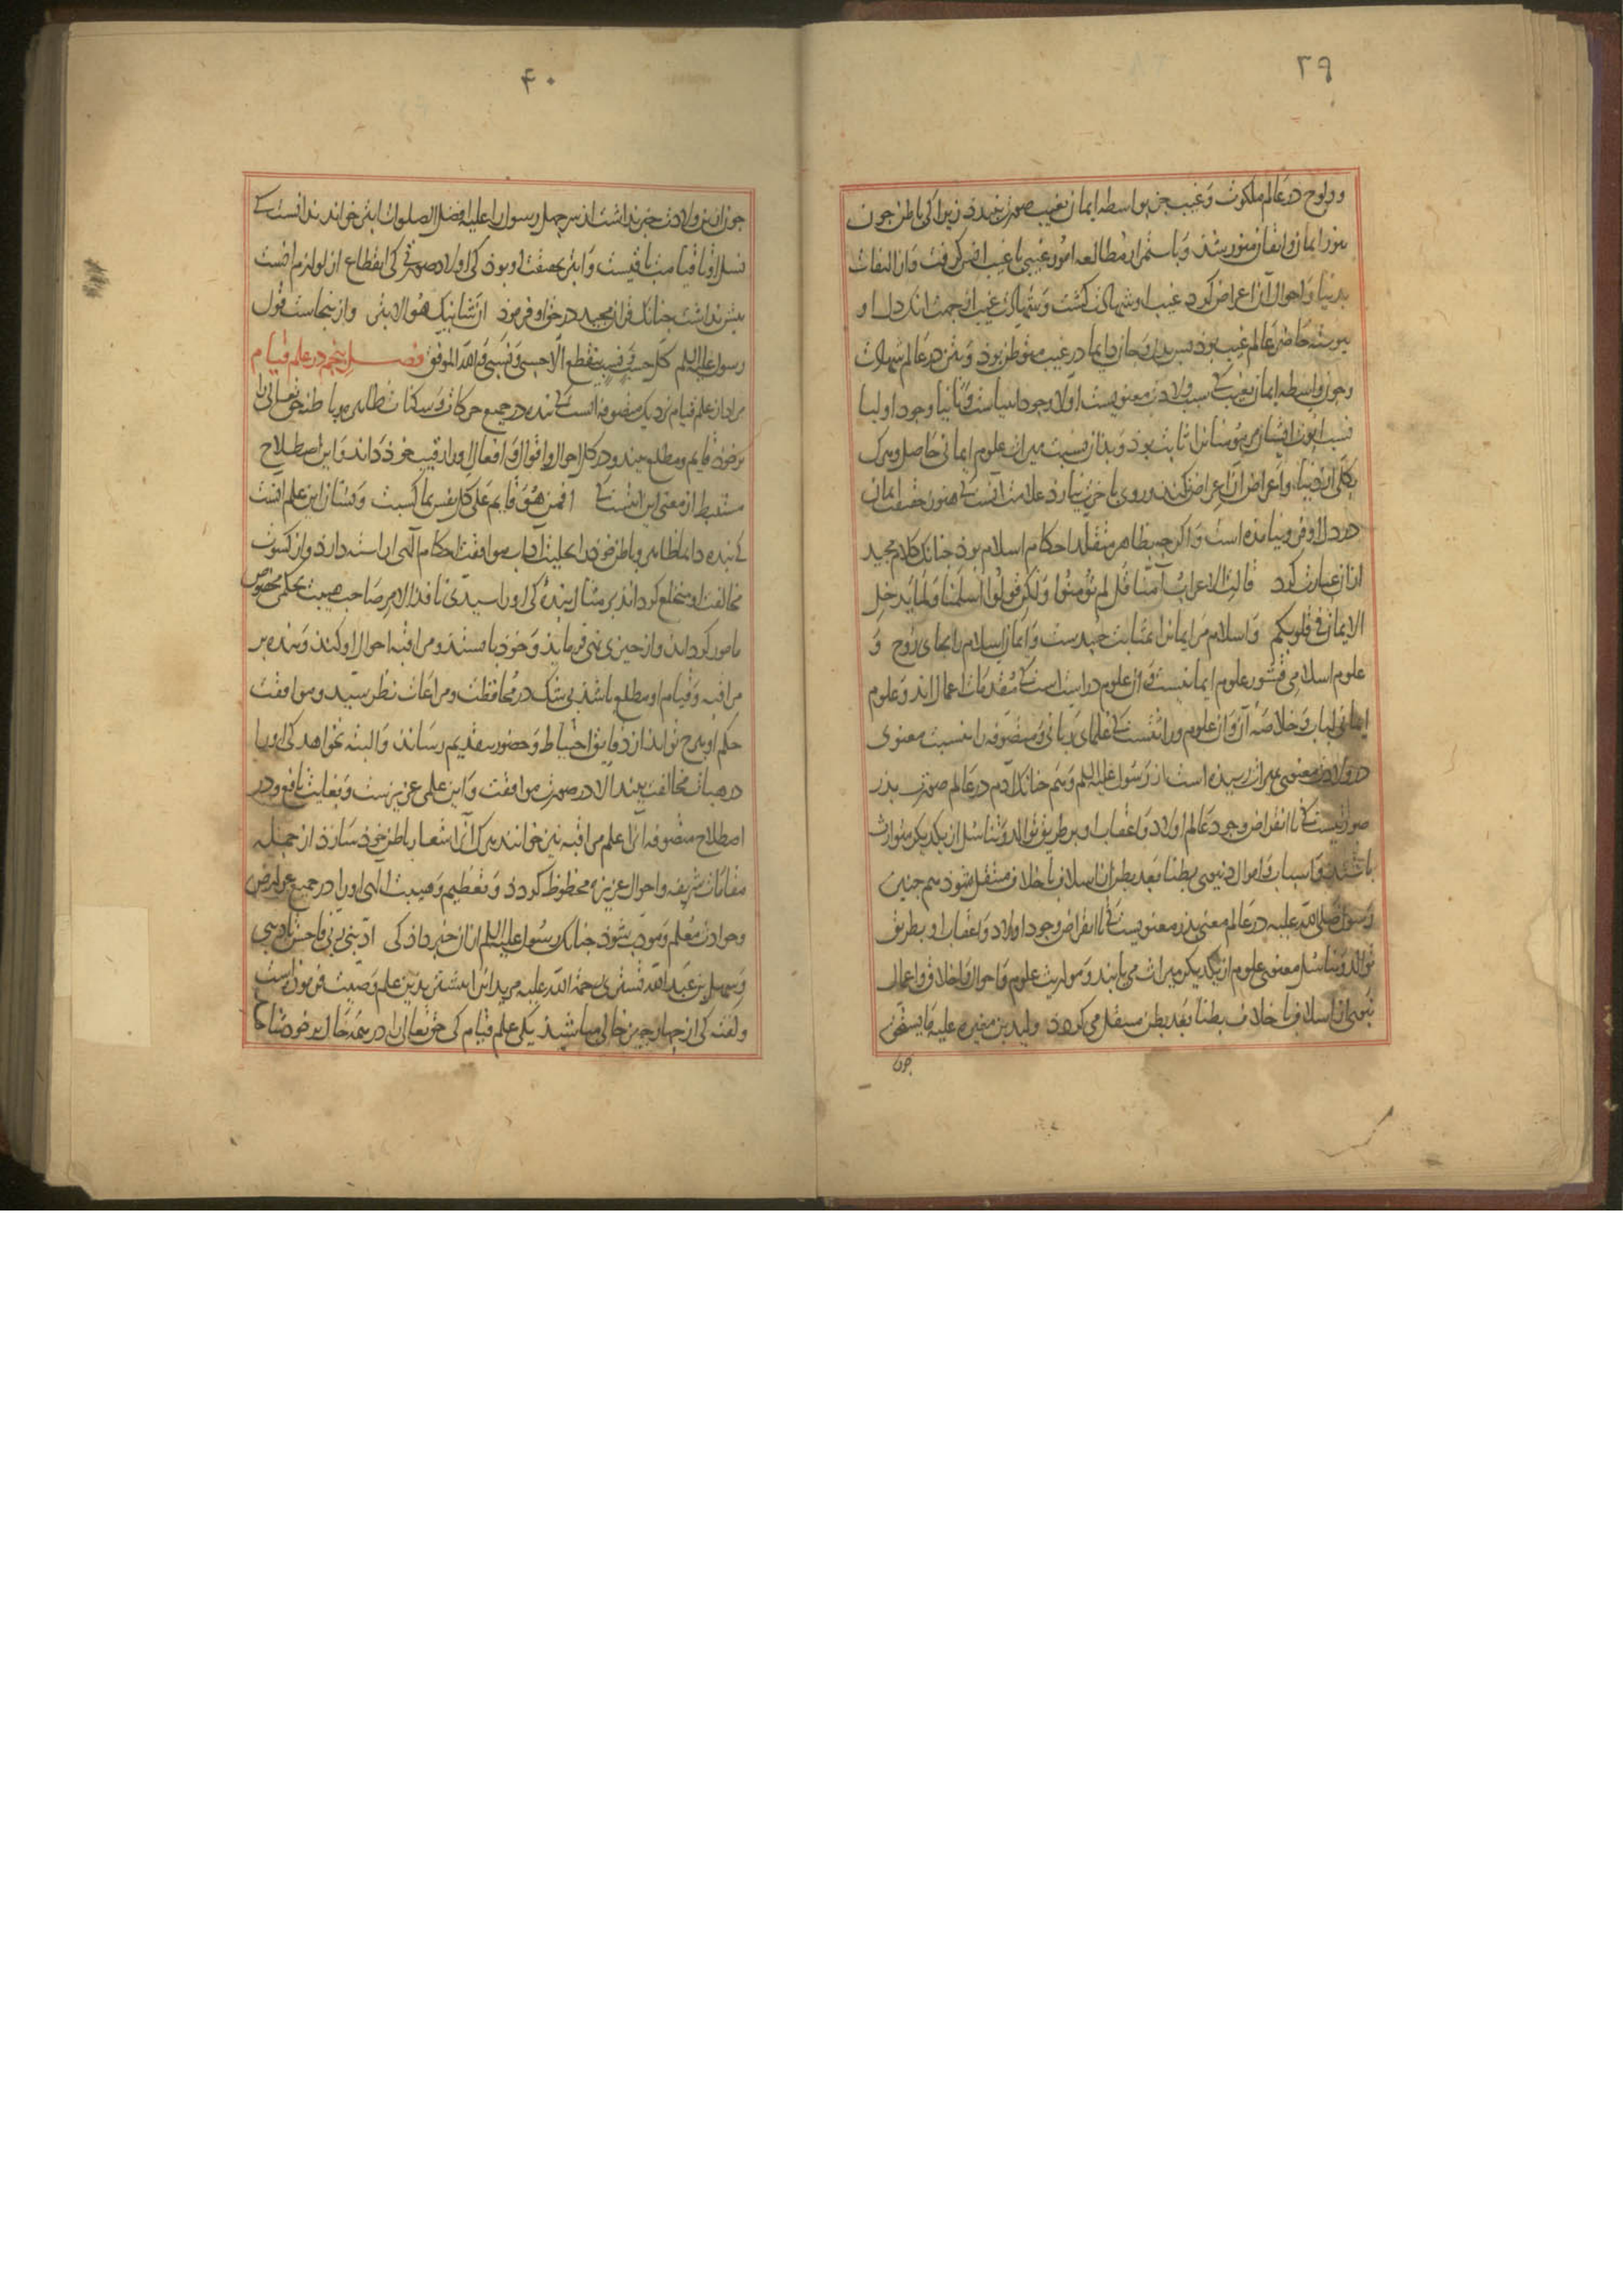 ۳۹
و ولوج در عالم ملکوت و غیب جز بواسطه ایمان بغیب صورت نبندد زیرا کی باطن چون
بنور ایمان و ایقان منور شد و باستمرار مطالعه امور غیبی با غیب انس کرفت و از التفات
بدنیا و احوال آن اعراض کرد غیب او شهادت کشت و شهادت غیب از جهت انک دل او
پیوسته حاضر عالم غیب بود بسر دل و جان دایما در غیب متوطن بود و بتن در عالم شهادت
و چون واسطه ایمان بغیب کی سبب ولادت معنویست اولا وجود انبیاست و ثانیا وجود اولیا
نسب ابوت ایشان مر مؤمنانرا ثابت بود و بدان نسبت میراث علوم ایمانی حاصل و هرک
بکلی از دنیا و اعراض آن اعراض نکند و روی باخرت نیارد علامت آنست کی هنوز حقیقت ایمان
در دل او فرو نیامده است و اکر چه بظاهر متقلد احکام اسلام بود چنانک کلام مجید
از ان عبارت کرد قالت الاعراب آمنا قل لم تؤمنوا ولکن قولوا اسلمنا ولما یدخل
الایمان فی قلوبکم و اسلام مر ایمانرا بمثابت جسدست و ایمان اسلام را بجای روح و
علوم اسلامی قشور علوم ایمانیست و آن علوم دراست است کی مقدمات اعمال اند و علوم
ایمانی لباب و خلاصه آن و آن علوم وراثتست کی علمای ربانی و متصوفه را بنسبت معنوی
در ولادت معنوی میراث رسیده است از رسول علیه السلم و هم چنانک آدم در عالم صورت پدر
صوریست کی تا انقراض وجود عالم اولاد و اعقاب او بر طریق توالد و تناسل از یکدیکر متوارث
باشند و اسباب و اموال دنیوی بطنا بعد بطن از اسلاف باخلاف منتقل شود هم چنین
رسول صلی الله علیه در عالم معنی پدر معنویست کی تا انقراض وجود اولاد و اعقاب او بطریق
توالد و تناسل معنوی علوم از یکدیکر میراث می یابند و مواریث علوم و احوال و اخلاق و اعمال
نبوی از اسلاف باخلاف بطنا بعد بطن منتقل می کردد ولید بن مغیره علیه ما یستحق
چون
۴۰
چون ازین ولادت خبر نداشت از سر جهل رسول را علیه افضل الصلوات ابتر خواند ندانست کی
نسل او تا قیامت باقیست و ابتر بحقیقت او بود کی اولاد صورتی کی انقطاع از لوازم انست
بیش نداشت چنانک قران مجید در حق او فرمود ان شانیک هو الابتر و ازینجاست قول
رسول علیه السلم کل حسب و نسب ینقطع الا حسبی و نسبی و الله الموفق فصل پنجم در علم قیام
مراد از علم قیام نزدیک متصوفه انست کی بنده در جمیع حرکات و سکنات ظاهر و باطن حق تعالی را
بر خود قایم و مطلع بیند و در کل احوال و اقوال و افعال او را رقیب خود داند و این اصطلاح
مستنبط از معنی این ایتست کی افمن هو قایم علی کل نفس بما کسبت و نشان این علم انست
کی بنده دایما ظاهر و باطن خود را بحلیت آداب موافقت احکام الهی اراسته دارد و از کسوت
مخالفت او منخلع کرداند بر مثال بنده کی او را سیدی نافذ الامر صاحب هیبت بحکمی مخصوص
مامور کرداند و از چیزی نهی فرماید و خود بایستد و مراقبه احوال او کند و بنده بر
مراقبه و قیام او مطلع باشد بی شک در محافظت و مراعات نظر سید و موافقت
حکم او هرچ تواند از دقایق احتیاط و حضور بتقدیم رساند و البته نخواهد کی او را
در هیات مخالفت بیند الا در صورت موافقت و این علمی عزیزست و بغایت نافع و در
اصطلاح متصوفه انرا علم مراقبه نیز خوانند هرک آنرا شعار باطن خود سازد از جمله
مقامات شریفه و احوال عزیزه محظوظ کردد و تعظیم و هیبت الهی او را در جمیع عوارض
و حوادث معلم و مودب شود چنانک رسول علیه السلم از ان خبر داد کی ادبنی ربی فاحسن تادیبی
و سهل بن عبد الله تستری رحمة الله علیه مریدانرا بداشتن بدین علم وصیت فرموده است
و کفته کی از چهار چیز خالی مباشید یکی علم قیام کی حق تعالی را در همه حال بر خود شاهد